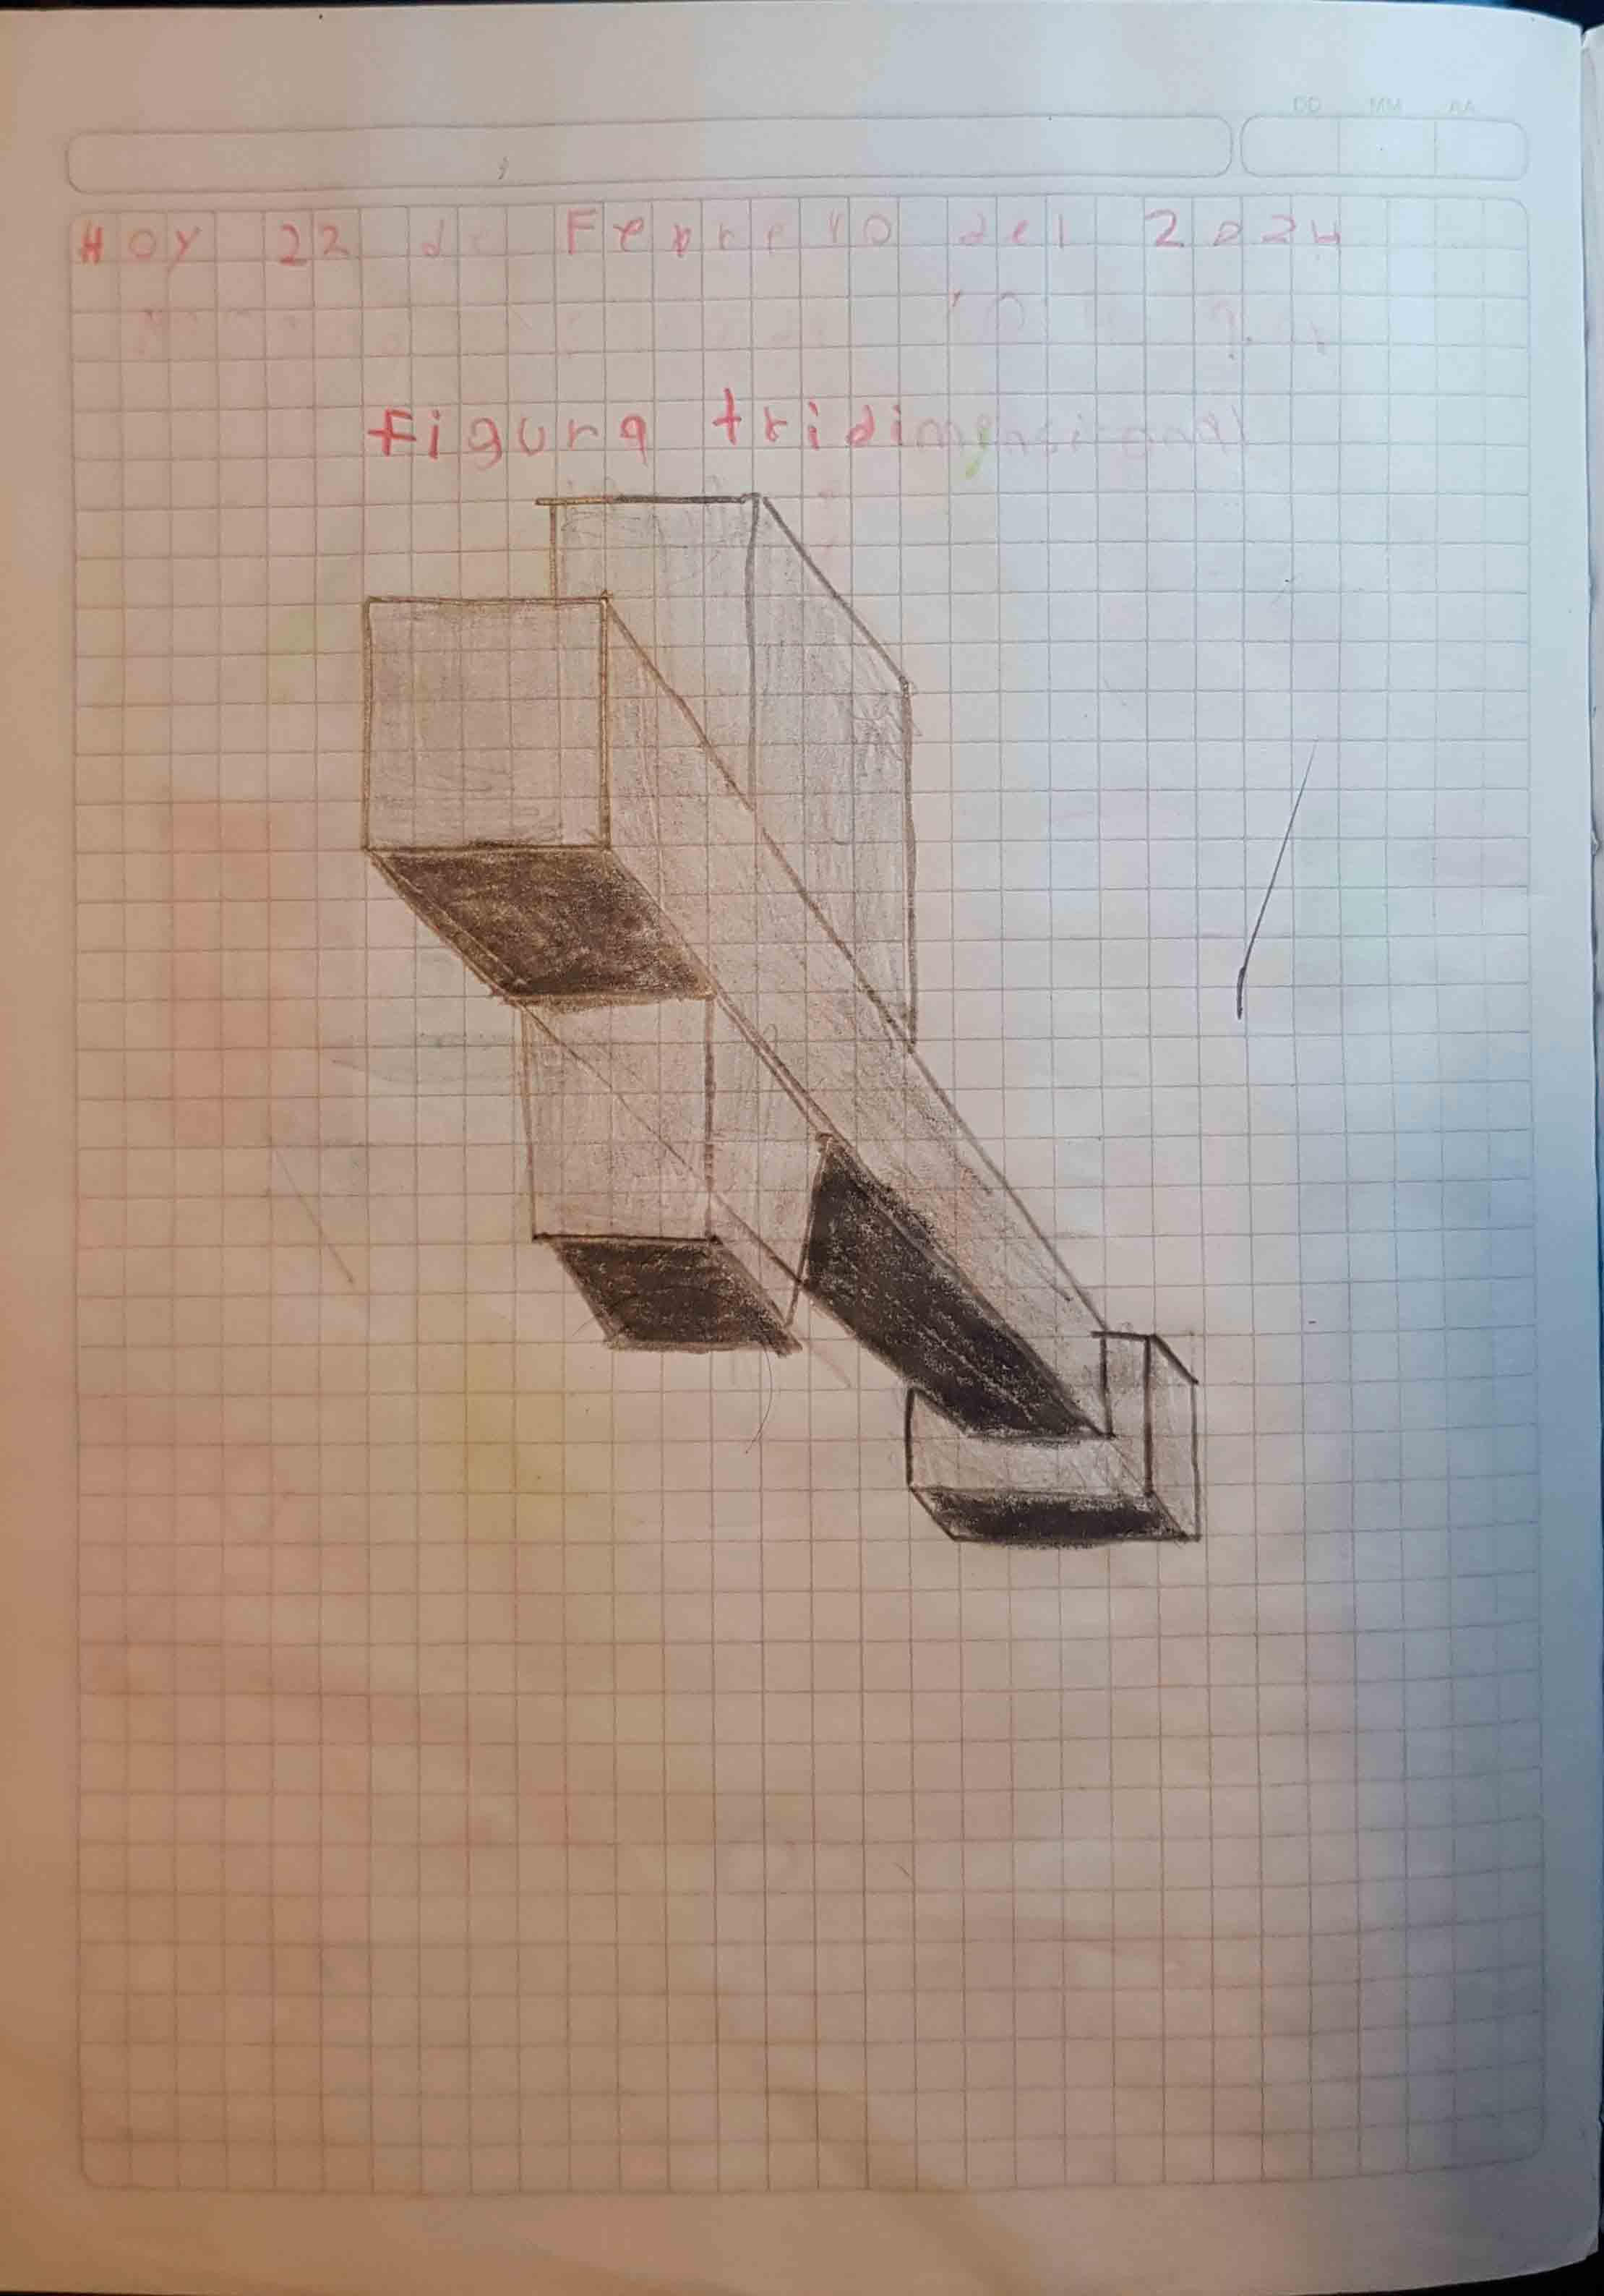 DD MM AA
HOY 22 de Febrero del 2024
Figura tridimensional